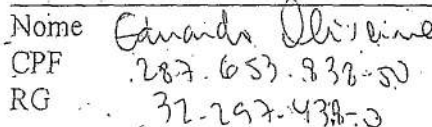 Nome Eduardo Oliveira
CPF 287.653.838-50
RG 32-297-438-0